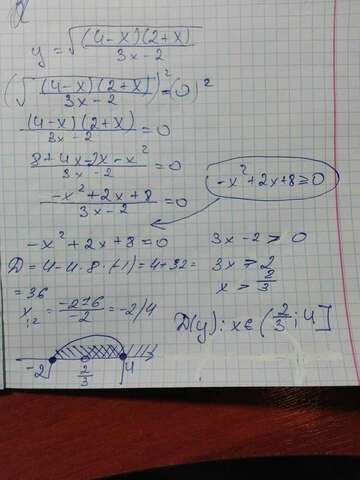 y = √((4-x)(2+x)/(3x-2))
(√((4-x)(2+x)/(3x-2)))² = (0)²
(4-x)(2+x)/(3x-2) = 0
(8+4x-2x-x²)/(3x-2) = 0
(-x²+2x+8)/(3x-2) = 0
-x²+2x+8≥0
-x²+2x+8=0
D=4-4·8·(-1)=4+32=
=36
x₁,₂ = (-2±6)/(-2) = -2/4
3x-2>0
3x>2
x>2/3
D(y): x∈(2/3; 4]
-2 2/3 4